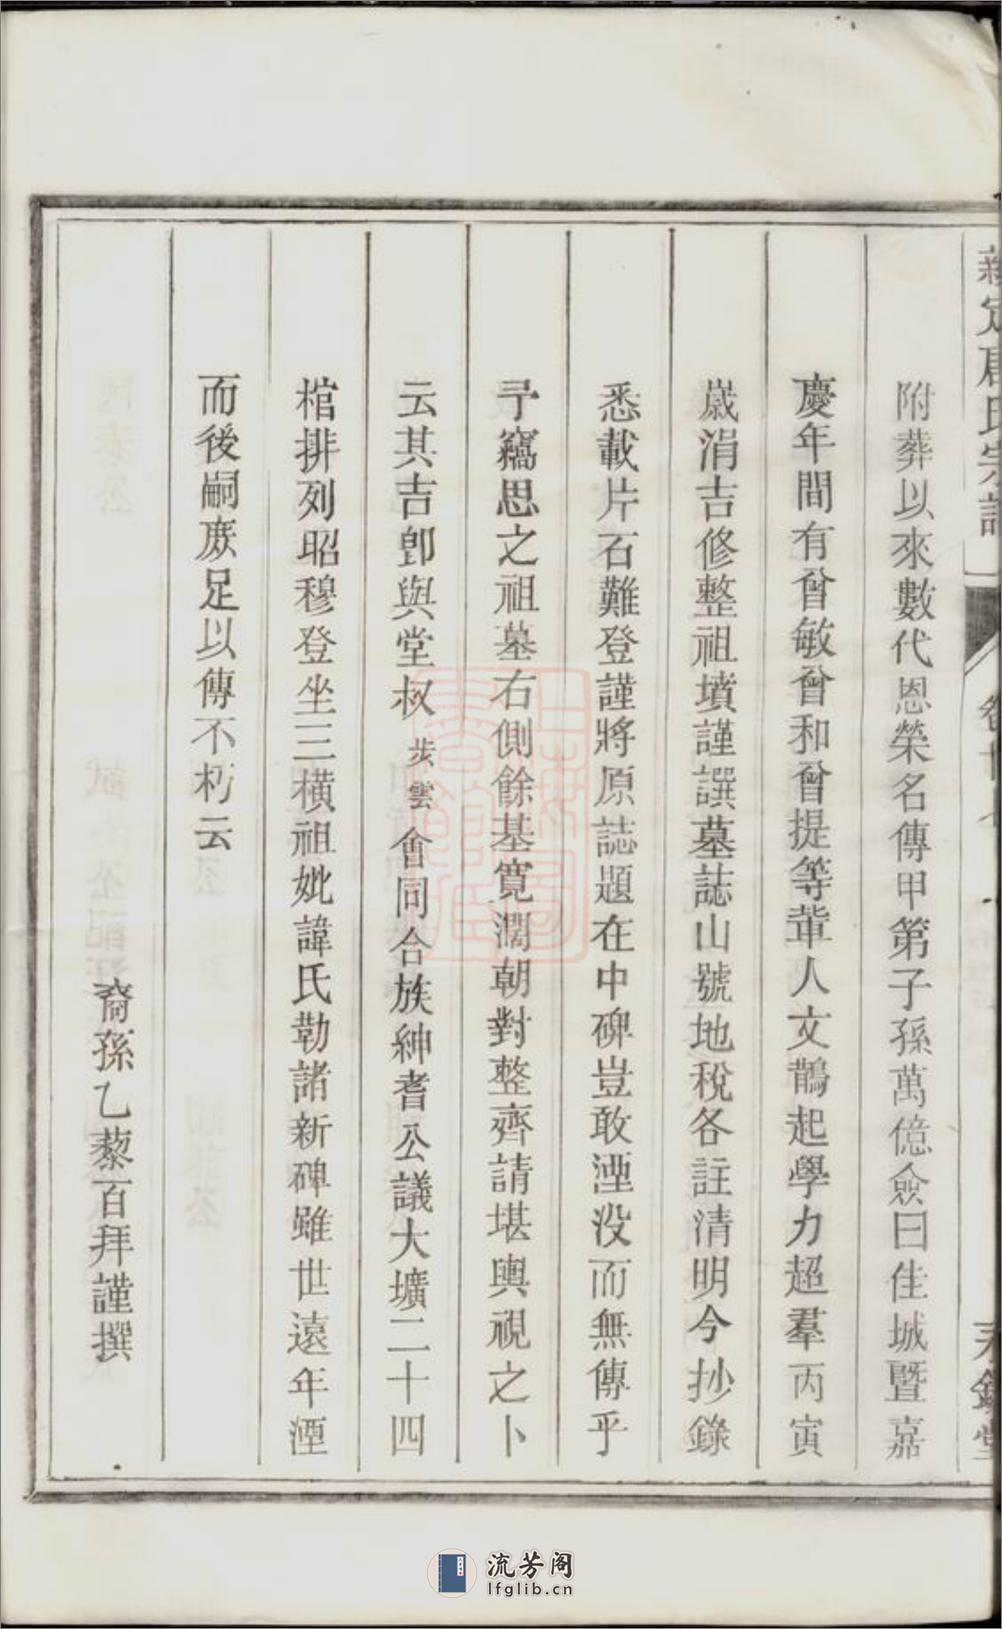 附葬以來數代恩榮名傳甲第子孫萬億僉曰佳城暨嘉
慶年間有曾敏曾和曾提等輩人文鵲起學力超羣丙寅
歲涓吉修整祖墳謹譔墓誌山號地稅各註清明今抄錄
悉載片石難登謹將原誌題在中碑豈敢湮没而無傳乎
予竊思之祖墓右側餘基寬濶朝對整齊請堪輿視之卜
云其吉卽與堂叔步雲會同合族紳耆公議大壙二十四
棺排列昭穆登坐三橫祖妣諱氏勒諸新碑雖世遠年湮
而後嗣庶足以傳不朽云
裔孫乙藜百拜謹撰
流芳阁
lfglib.cn